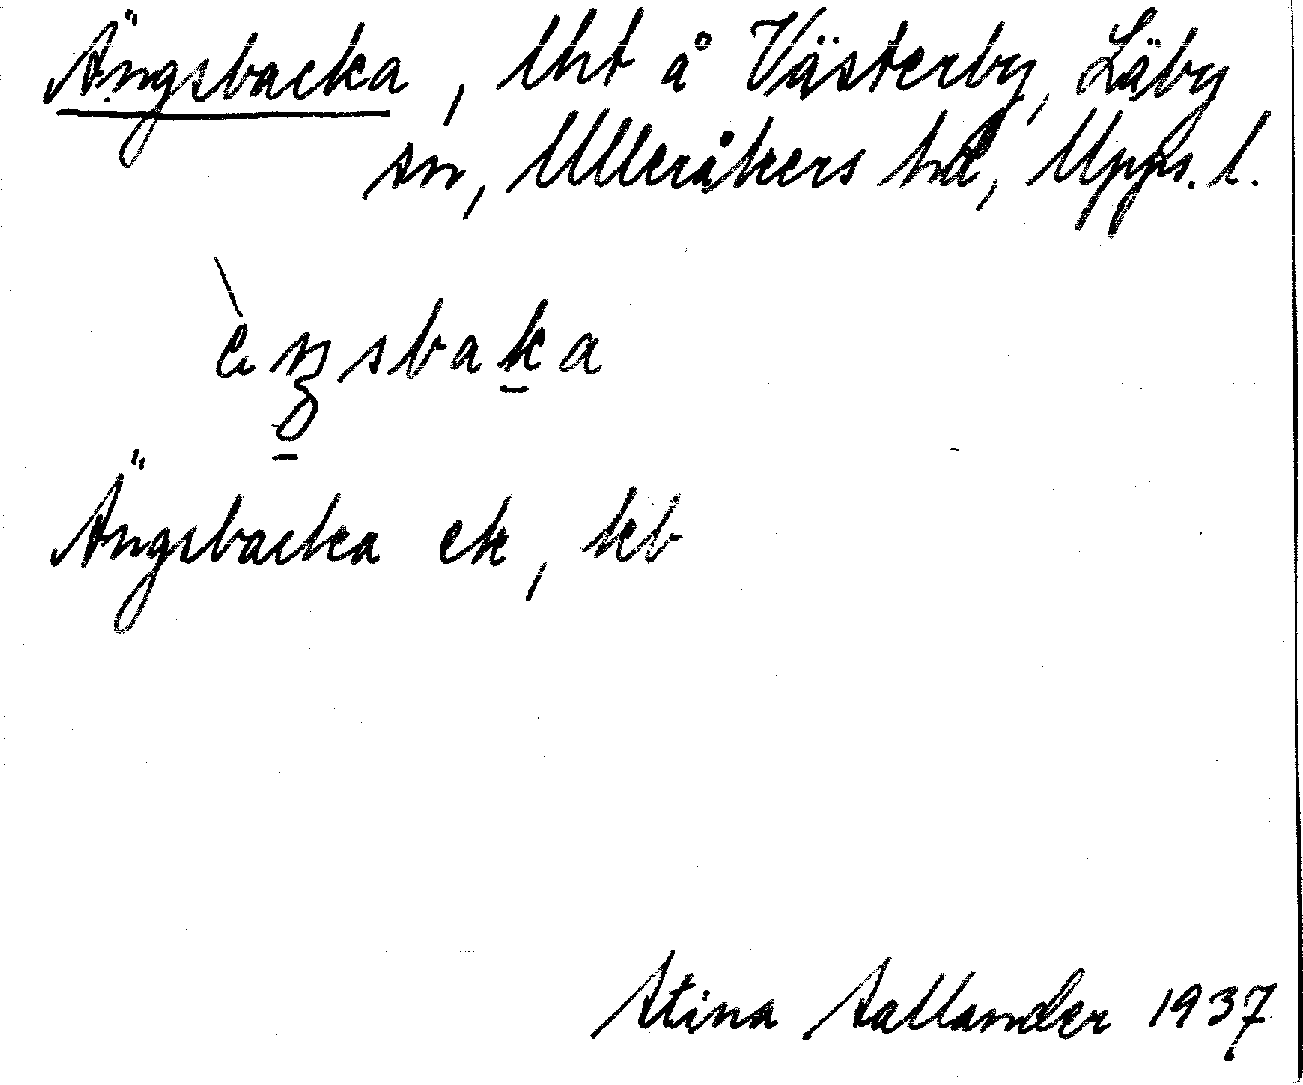 Ängsbacka, lht å Västerby, Läby
sn, Ulleråkers hd, Upps. l.
Ängsbacka ek, kb
Stina Sallander 1937